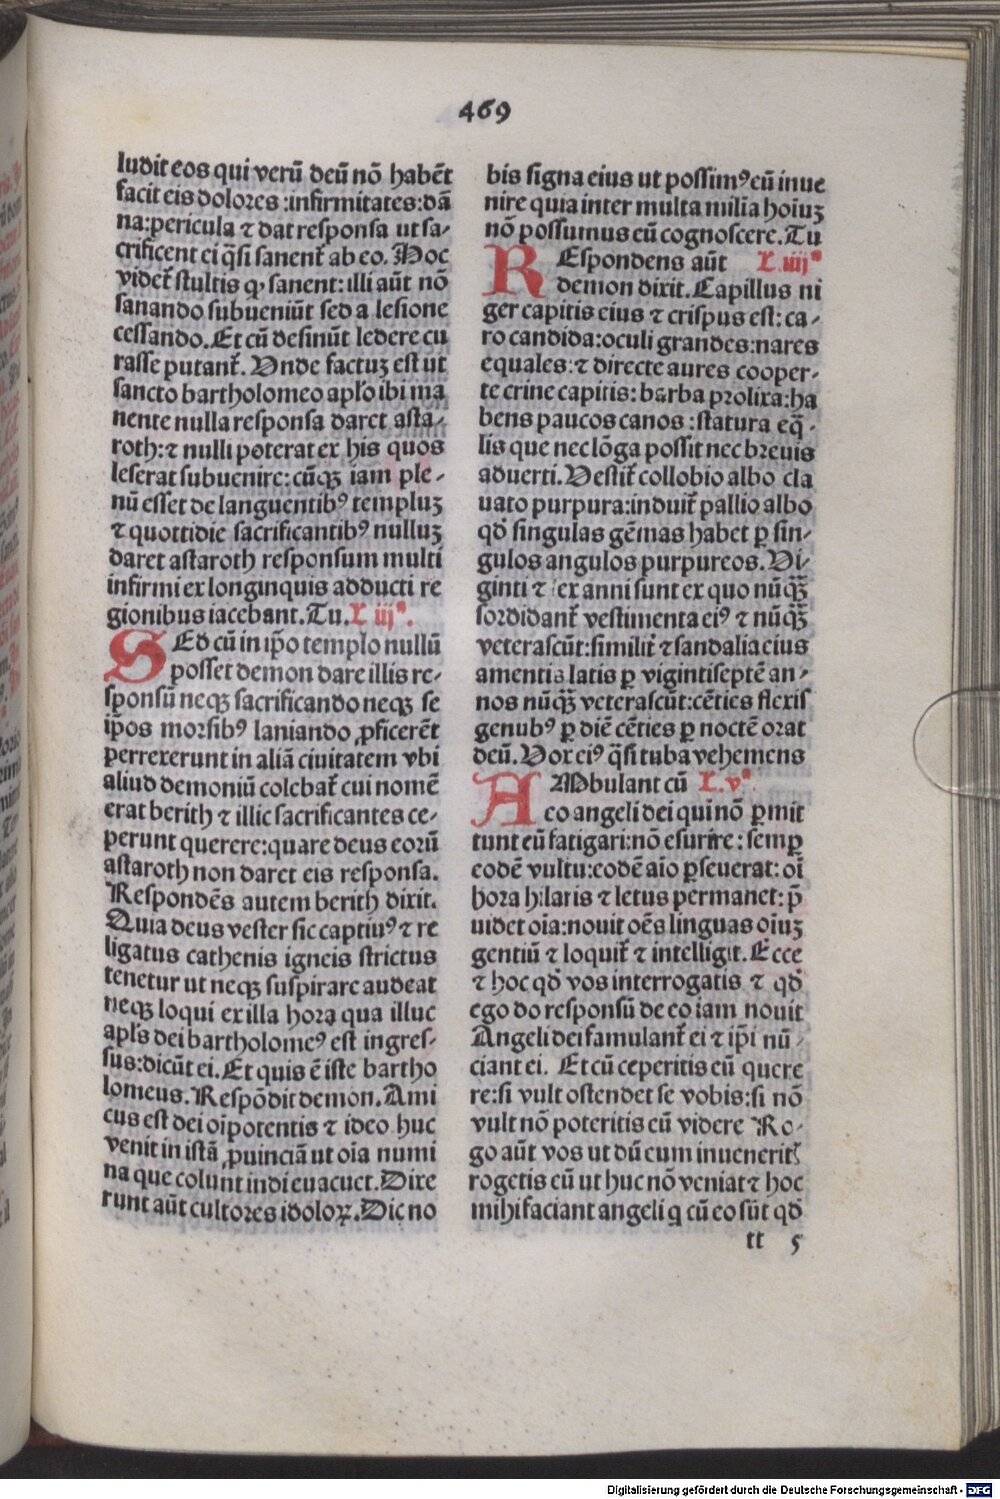 469
ludit eos qui verū deū nō habēt
facit eis dolores :infirmitates:dā
na:pericula ⁊ dat responsa ut sa-
crificent ei q̄si sanent᷑ ab eo. Hoc
videt᷑ stultis ꝙ sanent: illi aūt nō
sanando subueniūt sed a lesione
cessando. Et cū desinūt ledere cu
rasse putant᷑. Unde factuꝫ est ut
sancto bartholomeo apl'o ibi ma
nente nulla responsa daret asta-
roth:⁊ nulli poterat ex his quos
leserat subuenire: cūqꝫ iam ple-
nū esset de languentibꝰ templuꝫ
⁊ quottidie sacrificantibꝰ nulluꝫ
daret astaroth responsum multi
infirmi ex longinquis adducti re
gionibus iacebant. Tu. L iijᵃ.
SEd cū in ip̄o templo nullū
posset demon dare illis re-
sponsū neqꝫ sacrificando neqꝫ se
ip̄os morsibꝰ laniando ꝓficerēt
perrexerunt in aliā ciuitatem vbi
aliud demoniū colebat᷑ cui nomē
erat berith ⁊ illic sacrificantes ce-
perunt querere:quare deus eorū
astaroth non daret eis responsa.
Respondēs autem berith dixit.
Quia deus vester sic captiuꝰ ⁊ re
ligatus cathenis igneis strictus
tenetur ut neqꝫ suspirare audeat
neqꝫ loqui ex illa hora qua illuc
apl's dei bartholomeꝰ est ingres-
sus:dicūt ei. Et quis ē iste bartho
lomeus. Respōdit demon. Ami
cus est dei oīpotentis ⁊ ideo huc
venit in istā ꝓuinciā ut oīa numi
na que colunt indi euacuet. Dixe
runt aūt cultores idoloꝝ. Dic no
bis signa eius ut possimꝰ eū inue
nire quia inter multa milia hoīuꝫ
nō possumus eū cognoscere. Tu
REspondens aūt L. iiijᵃ
demon dixit. Capillus ni
ger capitis eius ⁊ crispus est: ca-
ro candida:oculi grandes:nares
equales:⁊ directe aures cooper-
te crine capitis: barba prolixa:ha
bens paucos canos :statura eq̄-
lis que nec lōga possit nec breuis
aduerti. Vestit᷑ collobio albo cla
uato purpura:induit᷑ pallio albo
qd̄ singulas gēmas habet ꝑ sin-
gulos angulos purpureos. Vi-
ginti ⁊ sex anni sunt ex quo nūqꝫ̄
sordidant᷑ vestimenta eiꝰ ⁊ nūqꝫ̄
veterascūt:similit᷑ ⁊ sandalia eius
amentis latis ꝑ vigintiseptē an-
nos nūqꝫ̄ veterascūt:cēties flexis
genubꝰ ꝑ diē cēties ꝑ noctē orat
deū. Vox eiꝰ q̄si tuba vehemens
AMbulant cū L. vᵃ
eo angeli dei qui nō ꝑmit
tunt eū fatigari:nō esurire : semꝑ
eodē vultu:eodē aīo ꝑseuerat: oī
hora hilaris ⁊ letus permanet: p̄
uidet oīa:nouit oēs linguas oīuꝫ
gentiū ⁊ loquit᷑ ⁊ intelligit. Ecce
⁊ hoc qd̄ vos interrogatis ⁊ qd̄
ego do responsū de eo iam nouit
Angeli dei famulant᷑ ei ⁊ ip̄i nū-
ciant ei. Et cū ceperitis eū quere
re:si vult ostendet se vobis:si nō
vult nō poteritis eū videre Ro-
go aūt vos ut dū eum inueneritꝭ
rogetis eū ut huc nō veniat ⁊ hoc
mihi faciant angeli q̄ cū eo sūt qd̄
tt 5
Digitalisierung gefördert durch die Deutsche Forschungsgemeinschaft - DFG